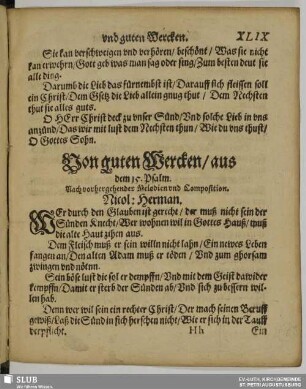 vnd guten Wercken. XLIX
Sie kan verschweigen vnd verhören/ beschönt/ Was sie nicht
kan erwehrn/ Gott geb was man sag oder sing/ Zum besten deut sie
alle ding.
Darumb die Lieb das fürnemst ist/ Darauff sich fleissen soll
ein Christ/ Dem Gsetz die Lieb allein gnug thut/ Dem Nechsten
thut sie alles guts.
O HErr Christ deck zu vnser Sünd/ Vnd solche Lieb in vns
anzünd/ Das wir mit lust dem Nechsten thun/ Wie du vns thust/
O Gottes Sohn.
Von guten Wercken/ aus
dem 15. Psalm.
Nach vorhergehender Melodien vnd Composition.
Nicol: Herman.
WEr durch den Glauben ist gerecht/ der muß nicht sein der
Sünden Knecht/ Wer wohnen will in Gottes Hauß/ muß
die alte Haut ziehen aus.
Dem Fleisch muß er sein willn nicht lahn/ Ein newes Leben
fangen an/ Den alten Adam muß er töden/ Vnd zum ghorsam
zwingen vnd nöten.
Sein böse lust die sol er dempffn/ Vnd mit dem Geist dawider
kempffn/ Damit er sterb der Sünden ab/ Vnd sich zu bessern wil-
len hab.
Denn wer wil sein ein rechter Christ/ Der mach seinen Beruff
gewiß/ Laß die Sünd in sich herschen nicht/ Wie er sich in der Tauff
verpflicht. Hh Ein
SLUB
Wir führen Wissen.
EV.-LUTH. KIRCHGEMEINDE
ST. PETRI AUGUSTUSBURG